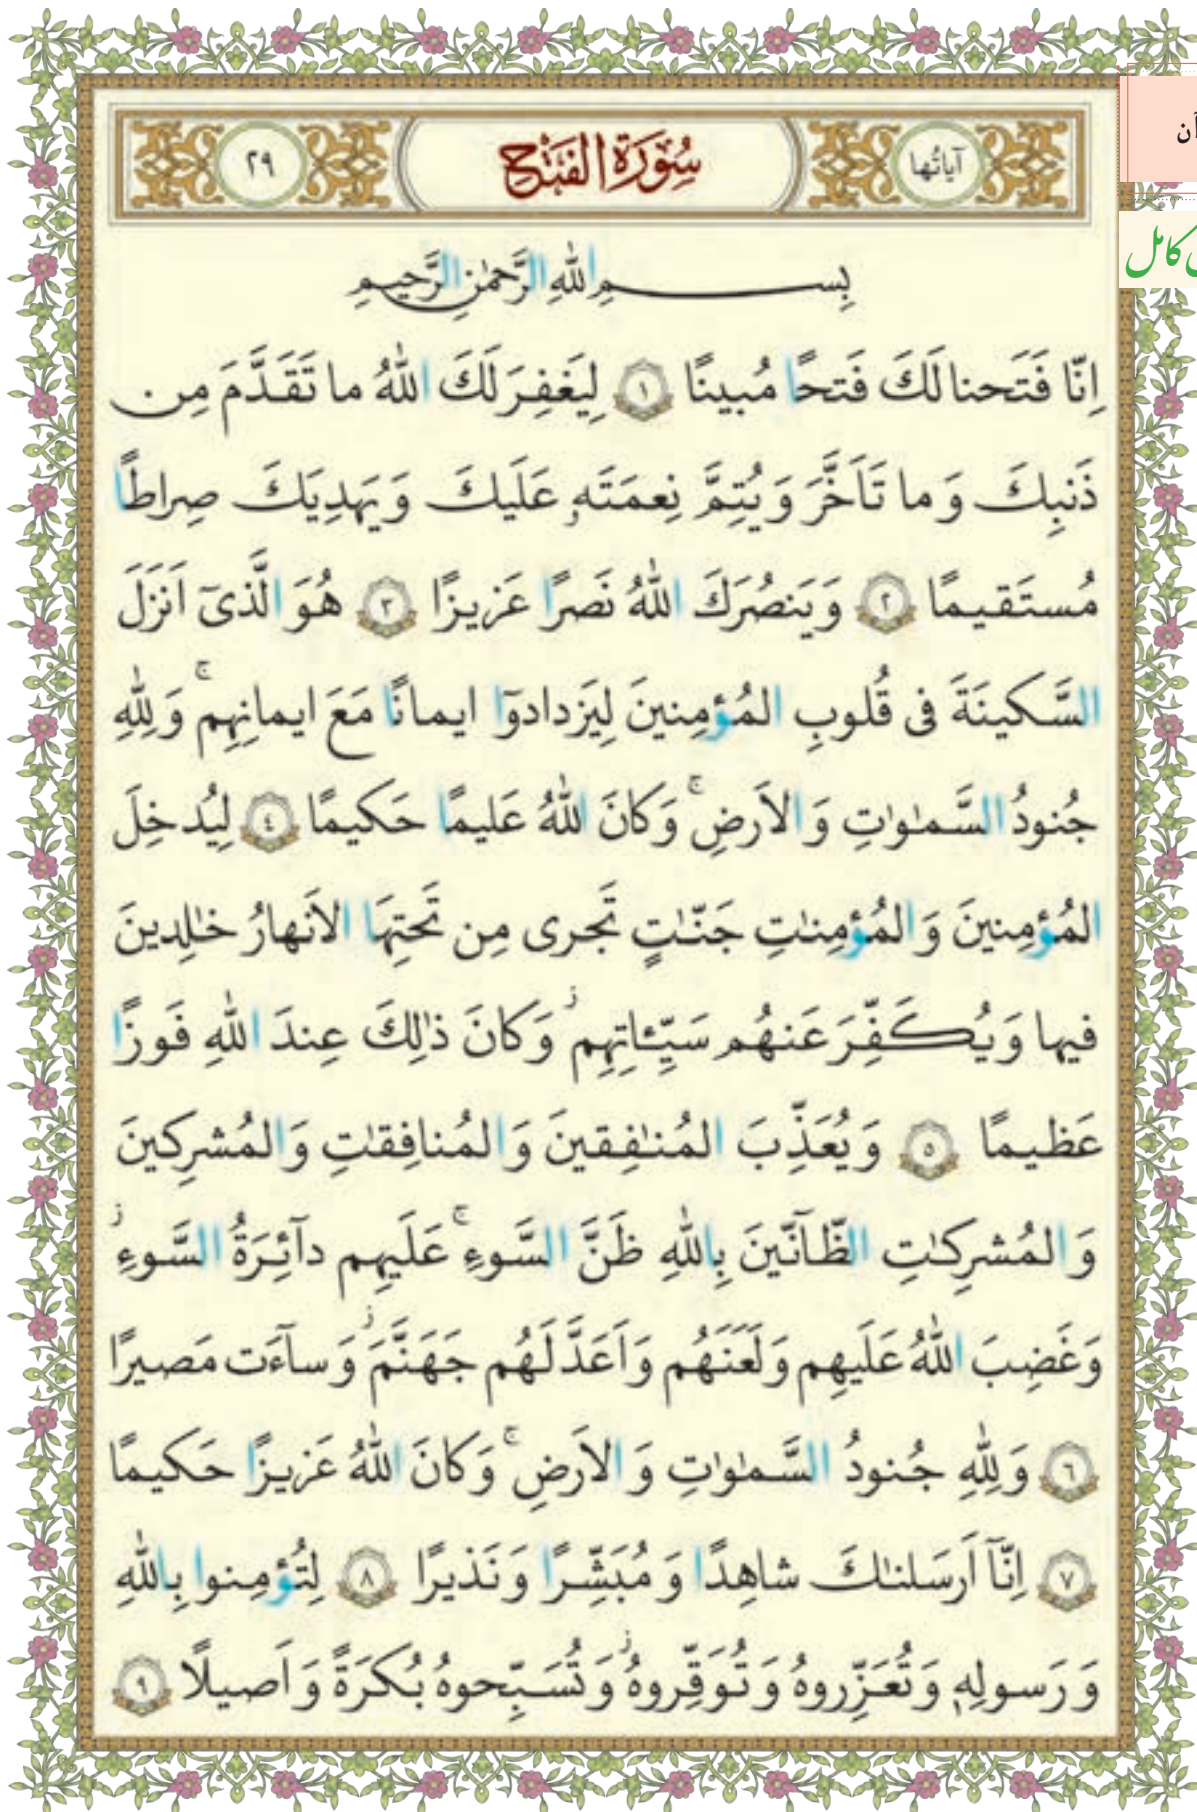 آیاتُها سُورَةُ الفَتحِ ٢٩
بِسمِ اللّٰهِ الرَّحمٰنِ الرَّحيمِ
اِنّا فَتَحنا لَكَ فَتحًا مُبينًا ١ لِيَغفِرَ لَكَ اللّٰهُ ما تَقَدَّمَ مِن
ذَنبِكَ وَ ما تَاَخَّرَ وَ يُتِمَّ نِعمَتَهٗ عَلَيكَ وَ يَهدِيَكَ صِراطًا
مُستَقيمًا ٢ وَ يَنصُرَكَ اللّٰهُ نَصرًا عَزيزًا ٣ هُوَ الَّذىٓ اَنزَلَ
السَّكينَةَ فى قُلوبِ المُؤمِنينَ لِيَزدادوٓا ايمانًا مَعَ ايمانِهِم ۚ وَ لِلّٰهِ
جُنودُ السَّمٰوٰتِ وَ الاَرضِ ۚ وَ كانَ اللّٰهُ عَليمًا حَكيمًا ٤ لِيُدخِلَ
المُؤمِنينَ وَ المُؤمِنٰتِ جَنّٰتٍ تَجرى مِن تَحتِهَا الاَنهارُ خٰلِدينَ
فيها وَ يُكَفِّرَ عَنهُم سَيِّـٔاتِهِم ۚ وَ كانَ ذٰلِكَ عِندَ اللّٰهِ فَوزًا
عَظيمًا ٥ وَ يُعَذِّبَ المُنٰفِقينَ وَ المُنافِقٰتِ وَ المُشرِكينَ
وَ المُشرِكٰتِ الظّآنّينَ بِاللّٰهِ ظَنَّ السَّوءِ ۚ عَلَيهِم دآئِرَةُ السَّوءِ ۖ
وَ غَضِبَ اللّٰهُ عَلَيهِم وَ لَعَنَهُم وَ اَعَدَّ لَهُم جَهَنَّمَ ۖ وَ سآءَت مَصيرًا
٦ وَ لِلّٰهِ جُنودُ السَّمٰوٰتِ وَ الاَرضِ ۚ وَ كانَ اللّٰهُ عَزيزًا حَكيمًا
٧ اِنّآ اَرسَلنٰكَ شاهِدًا وَ مُبَشِّرًا وَ نَذيرًا ٨ لِتُؤمِنوا بِاللّٰهِ
وَ رَسولِهٖ وَ تُعَزِّروهُ وَ تُوَقِّروهُ ۖ وَ تُسَبِّحوهُ بُكرَةً وَ اَصيلًا ٩
كامل